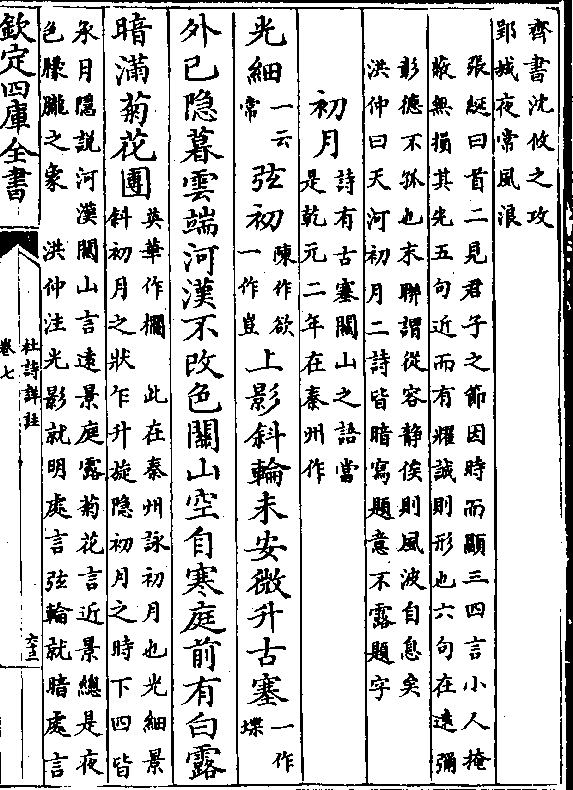 齊書沈攸之攻
郢城夜常風浪
張綖曰首二見君子之節因時而顯三四言小人掩
蔽無損其先五句近而有耀誠則形也六句在遠彌
彰德不孤也末聯謂從容靜俟則風波自息矣
洪仲曰天河初月二詩皆暗寫題意不露題字
初月
詩有古塞關山之語當
是乾元二年在秦州作
光細
一云
常
弦初
陳作欲
一作豈
上影斜輪未安微升古塞
一作
堞
外已隐暮雲端河漢不改色關山空自寒庭前有白露
暗滿菊花團
英華作欄 此在秦州詠初月也光細景
斜初月之狀乍升旋隐初月之時下四皆
承月隱説河漢關山言遠景庭露菊花言近景總是夜
色朦朧之象 洪仲注光影就明處言弦輪就暗處言
欽定四庫全書
杜詩詳註
卷七
六三